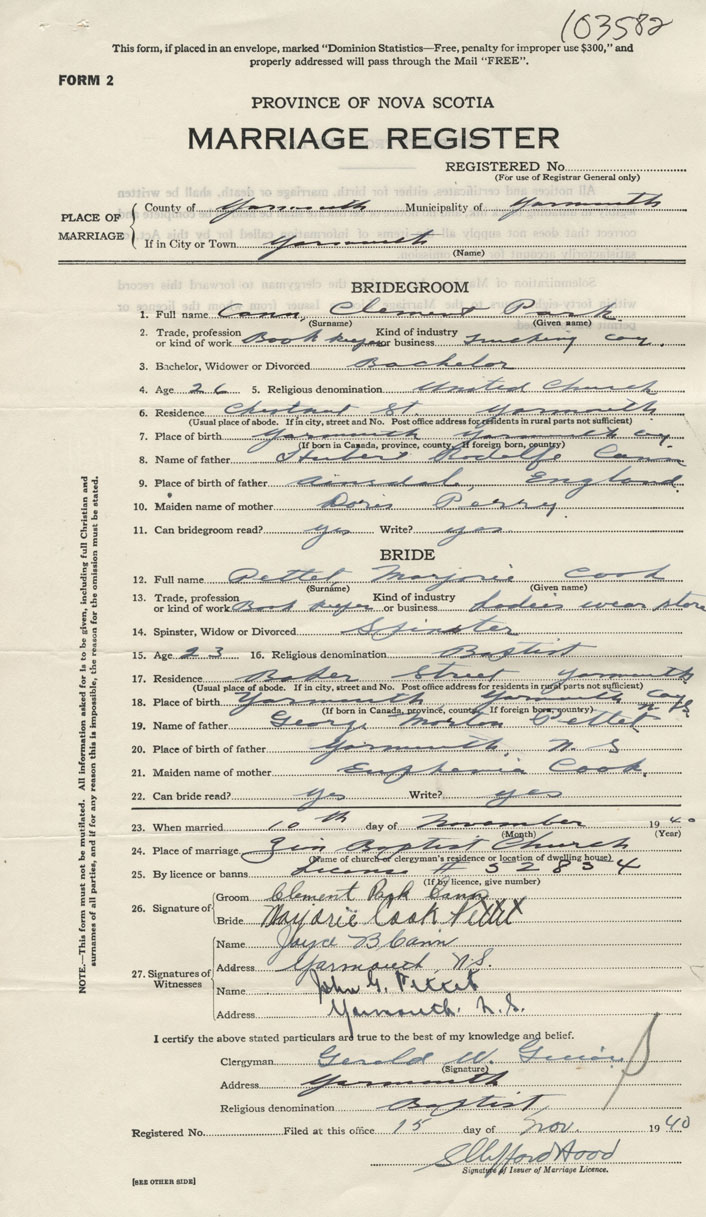 103582
This form, if placed in an envelope, marked "Dominion Statistics—Free, penalty for improper use $300," and
properly addressed will pass through the Mail "FREE".
FORM 2
PROVINCE OF NOVA SCOTIA
MARRIAGE REGISTER
REGISTERED No.
(For use of Registrar General only)
PLACE OF MARRIAGE
County of Yarmouth Municipality of Yarmouth
If in City or Town Yarmouth
(Name)
BRIDEGROOM
1. Full name Cann, Clement Park
(Surname) (Given name)
2. Trade, profession or kind of work Book keeper Kind of industry or business Trucking coy.
3. Bachelor, Widower or Divorced Bachelor
4. Age 26 5. Religious denomination United Church
6. Residence Chestnut St. Yarmouth
(Usual place of abode. If in city, street and No. Post office address for residents in rural parts not sufficient)
7. Place of birth Yarmouth Yarmouth coy.
(If born in Canada, province, county. If foreign born, country)
8. Name of father Hubert Rodolfe Cann
9. Place of birth of father Ainsdale, England.
10. Maiden name of mother Doris Perry
11. Can bridegroom read? yes Write? yes
BRIDE
12. Full name Pettet Marjorie Cook
(Surname) (Given name)
13. Trade, profession or kind of work Book keeper Kind of industry or business Ladies wear store
14. Spinster, Widow or Divorced Spinster
15. Age 23 16. Religious denomination Baptist
17. Residence Baker Street Yarmouth
(Usual place of abode. If in city, street and No. Post office address for residents in rural parts not sufficient)
18. Place of birth Yarmouth Yarmouth Coy. N.S.
(If born in Canada, province, county. If foreign born, country)
19. Name of father George Morton Pettet
20. Place of birth of father Yarmouth, N.S
21. Maiden name of mother Euphemia Cook.
22. Can bride read? yes Write? yes
23. When married 10th day of November 1940
(Month) (Year)
24. Place of marriage Zion Baptist Church
(Name of church or clergyman's residence or location of dwelling house)
25. By licence or banns License # 52834
(If by licence, give number)
26. Signature of
Groom Clement Park Cann
Bride Marjorie Cook Pettet
27. Signatures of Witnesses
Name Joyce B Cann
Address Yarmouth, N.S.
Name John G. Pettet
Address Yarmouth. N.S.
I certify the above stated particulars are true to the best of my knowledge and belief.
Clergyman Gerald W.
(Signature)
Address Yarmouth
Religious denomination Baptist,
Registered No. Filed at this office 15 day of Nov. 1940
Clifford Hood
Signature of Issuer of Marriage Licence.
[SEE OTHER SIDE]
NOTE.—This form must not be mutilated. All information asked for is to be given, including full Christian and
surnames of all parties, and if for any reason this is impossible, the reason for the omission must be stated.